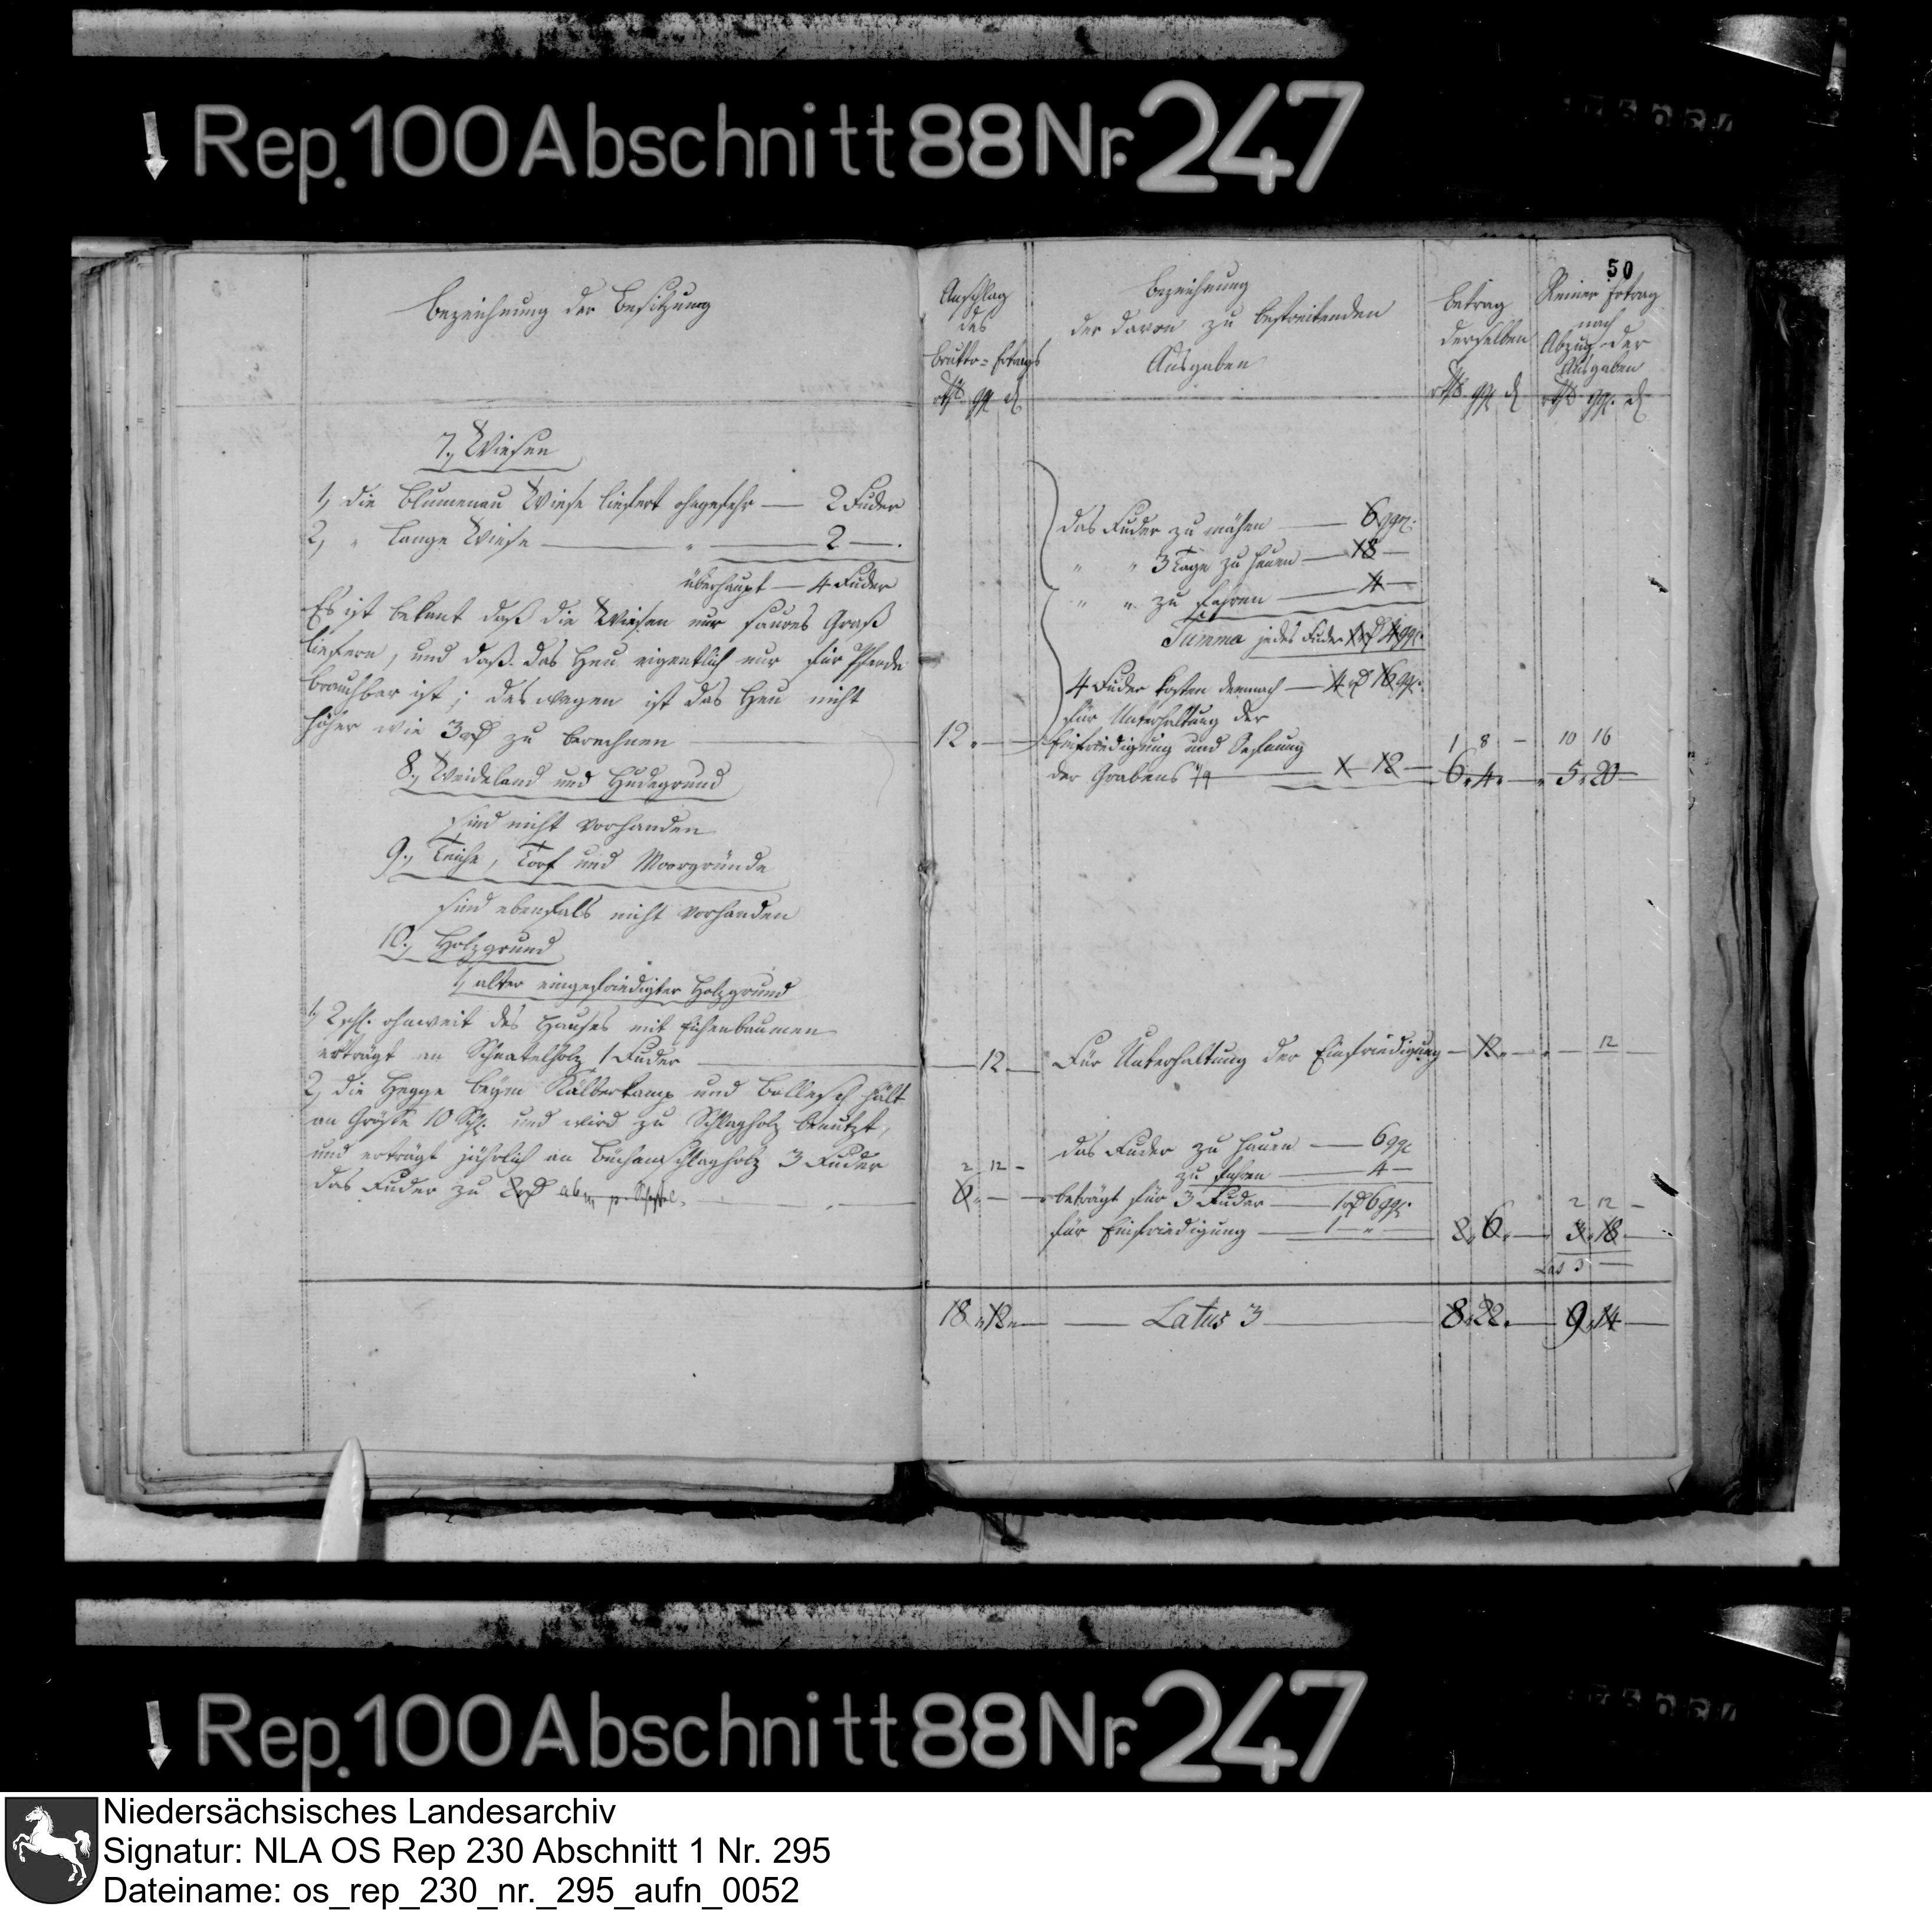 Rep. 100 Abschnitt 88 Nr. 247
50
Bezeichnung der Besitzung
Anschlag
des
Brutto=Ertrags
rthlr ggr d
Bezeichnung
der davon zu bestreitenden
Ausgaben
Betrag
derselben
rthlr ggr d
Reiner Ertrag
nach
Abzug der
Ausgaben
rthlr ggr. d
7., Wiesen
1, die Blumenau Wiese liefert ohngefehr — 2 Fuder
2, " Lange Wiese — " — 2 —.
überhaupt — 4 Fuder
Es ist bekant daß die Wiesen nur saures Graß
liefern, und daß das Heu eigentlich nur für Pferde
brauchbar ist; deswegen ist das Heu nicht
höher wie 3 rthlr zu berechnen — 12. —
das Fuder zu mähen — 6 ggr.
" " 3 Tage zu heuen — 18 —
" " zu fahren — 4 —
Summa jedes Fuder 1 rthlr 4 ggr.
4 Fuder kosten demnach — 4 rthlr 16 ggr.
für Unterhaltung der
Einfriedigung und
der Grabens — 1 12 —
1 8 —
6. 4. —
10 16
5. 20 —
8., Weideland und Hudegrund
sind nicht vorhanden
9., Teiche, Torf und Moorgründe
sind ebenfals nicht vorhanden
10., Holzgrund
1, alter eingefriedigter Holzgrund
1, 2 schl. ohnweit des Hauses mit Eichenbaumen
erträgt an Schnatelholz 1 Fuder — 12 —
Für Unterhaltung der Einfriedigung — 12. — 12 —
2, die Hegge beym Kälberkamp und Bollesch hält
an Grösse 10 Sch. und wird zu Schlagholz benutzt,
und erträgt jährlich an Büchenschlagholz 3 Fuder
das Fuder zu 2 rthlr
2 12 —
6. — —
das Fuder zu hauen — 6 ggr
zu fahren — 4 —
beträgt für 3 Fuder — 1 rthlr 6 ggr.
für Einfriedigung — 1 — " —
2. 6. —
2 12 —
3. 18. —
18. 12. — — Latus 3 — 8. 22. — 9. 14 —
Rep. 100 Abschnitt 88 Nr. 247
Niedersächsisches Landesarchiv
Signatur: NLA OS Rep 230 Abschnitt 1 Nr. 295
Dateiname: os_rep_230_nr._295_aufn_0052